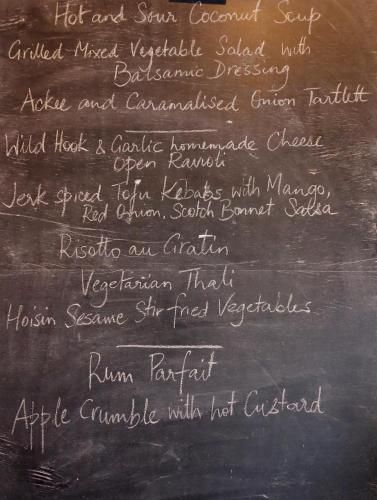 Hot and Sour Coconut Soup
Grilled Mixed Vegetable Salad with
Balsamic Dressing
Ackee and Caramalised Onion Tartlett
Wild Hook & Garlic homemade Cheese
Open Ravioli
Jerk spiced Tofu Kebabs with Mango,
Red Onion, Scotch Bonnet Salsa
Risotto au Gratin
Vegetarian Thali
Hoisin Sesame Stir fried Vegetables
Rum Parfait
Apple Crumble with hot Custard